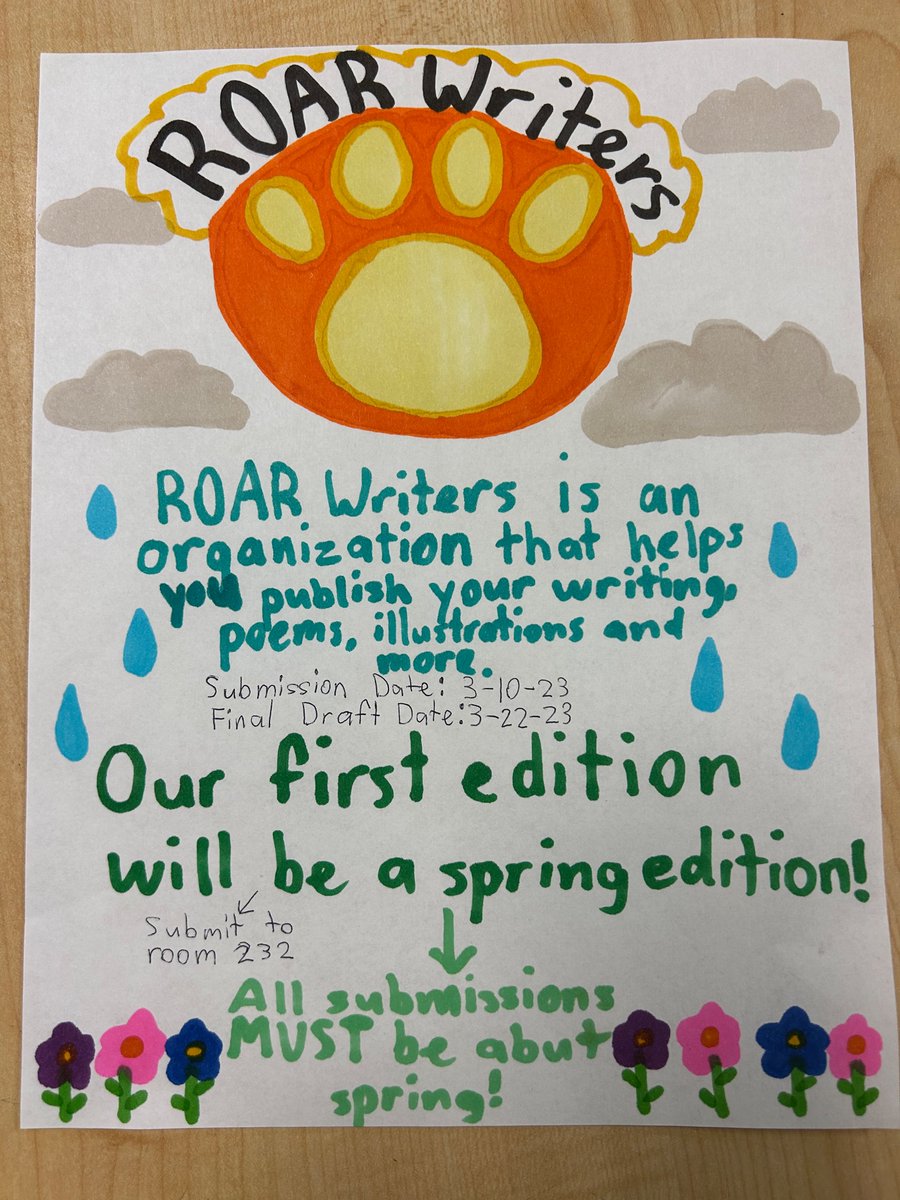 ROAR Writers
ROAR Writers is an
organization that helps
you publish your writing,
poems, illustrations and
more.
Submission Date: 3-10-23
Final Draft Date: 3-22-23
Our first edition
will be a spring edition!
Submit to
room 232
All submissions
MUST be abut
spring!